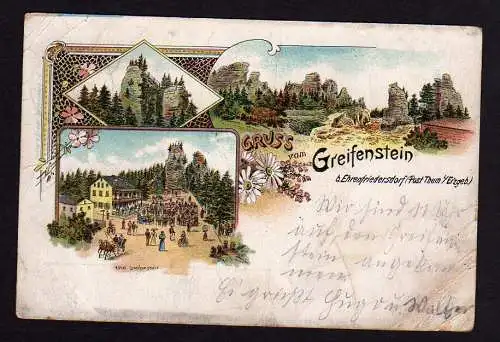 GRUSS vom
Greifenstein
b. Ehrenfriedersdorf (Post Thum i/Erzgeb.)
Wir sind
auf den Greifen
stein angekom
men
Es grüßt Hugo u Walther